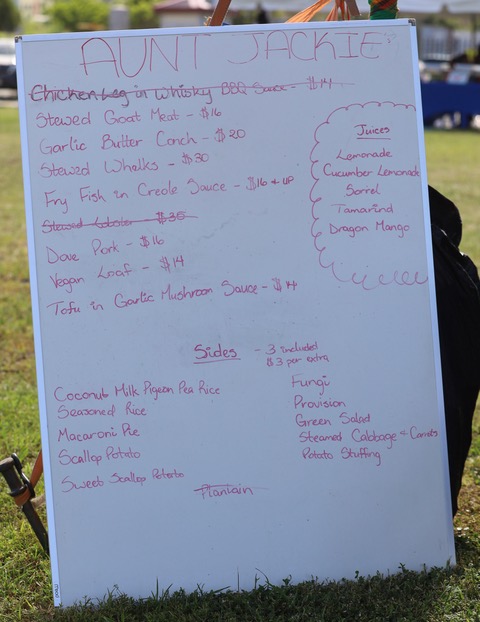 AUNT JACKIE
Chicken Leg in Whisky BBQ Sauce - $14
Stewed Goat Meat - $16
Garlic Butter Conch - $20
Stewed Whelks - $30
Fry Fish in Creole Sauce - $16 + up
Stewed Lobster - $30
Dove Pork - $16
Vegan Loaf - $14
Tofu in Garlic Mushroom Sauce - $14
Juices
Lemonade
Cucumber Lemonade
Sorrel
Tamarind
Dragon Mango
Sides - 3 included
$3 per extra
Coconut Milk Pigeon Pea Rice
Seasoned Rice
Macaroni Pie
Scallop Potato
Sweet Scallop Potato
Fungi
Provision
Green Salad
Steamed Cabbage + Carrots
Potato Stuffing
Plantain